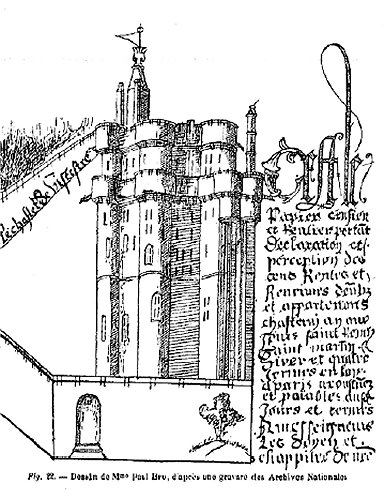 de
Papier Censier
et Rentier portāt
Declaration et
perception des
cens Rentes et
Revenues deubz
et appartenans
chascun an aux
Jours saint Remy
Saint martin d
Iver et quatre
termes en
a paris
et paiables ausd
Jours et termes
Messeigneurs
Les doyen et
chappitre de nre
Fig. 22. — Dessin de Mme Paul Bru, d'après une gravure des Archives Nationales